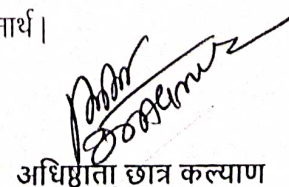 नार्थ |
अधिष्ठाता छात्र कल्याण